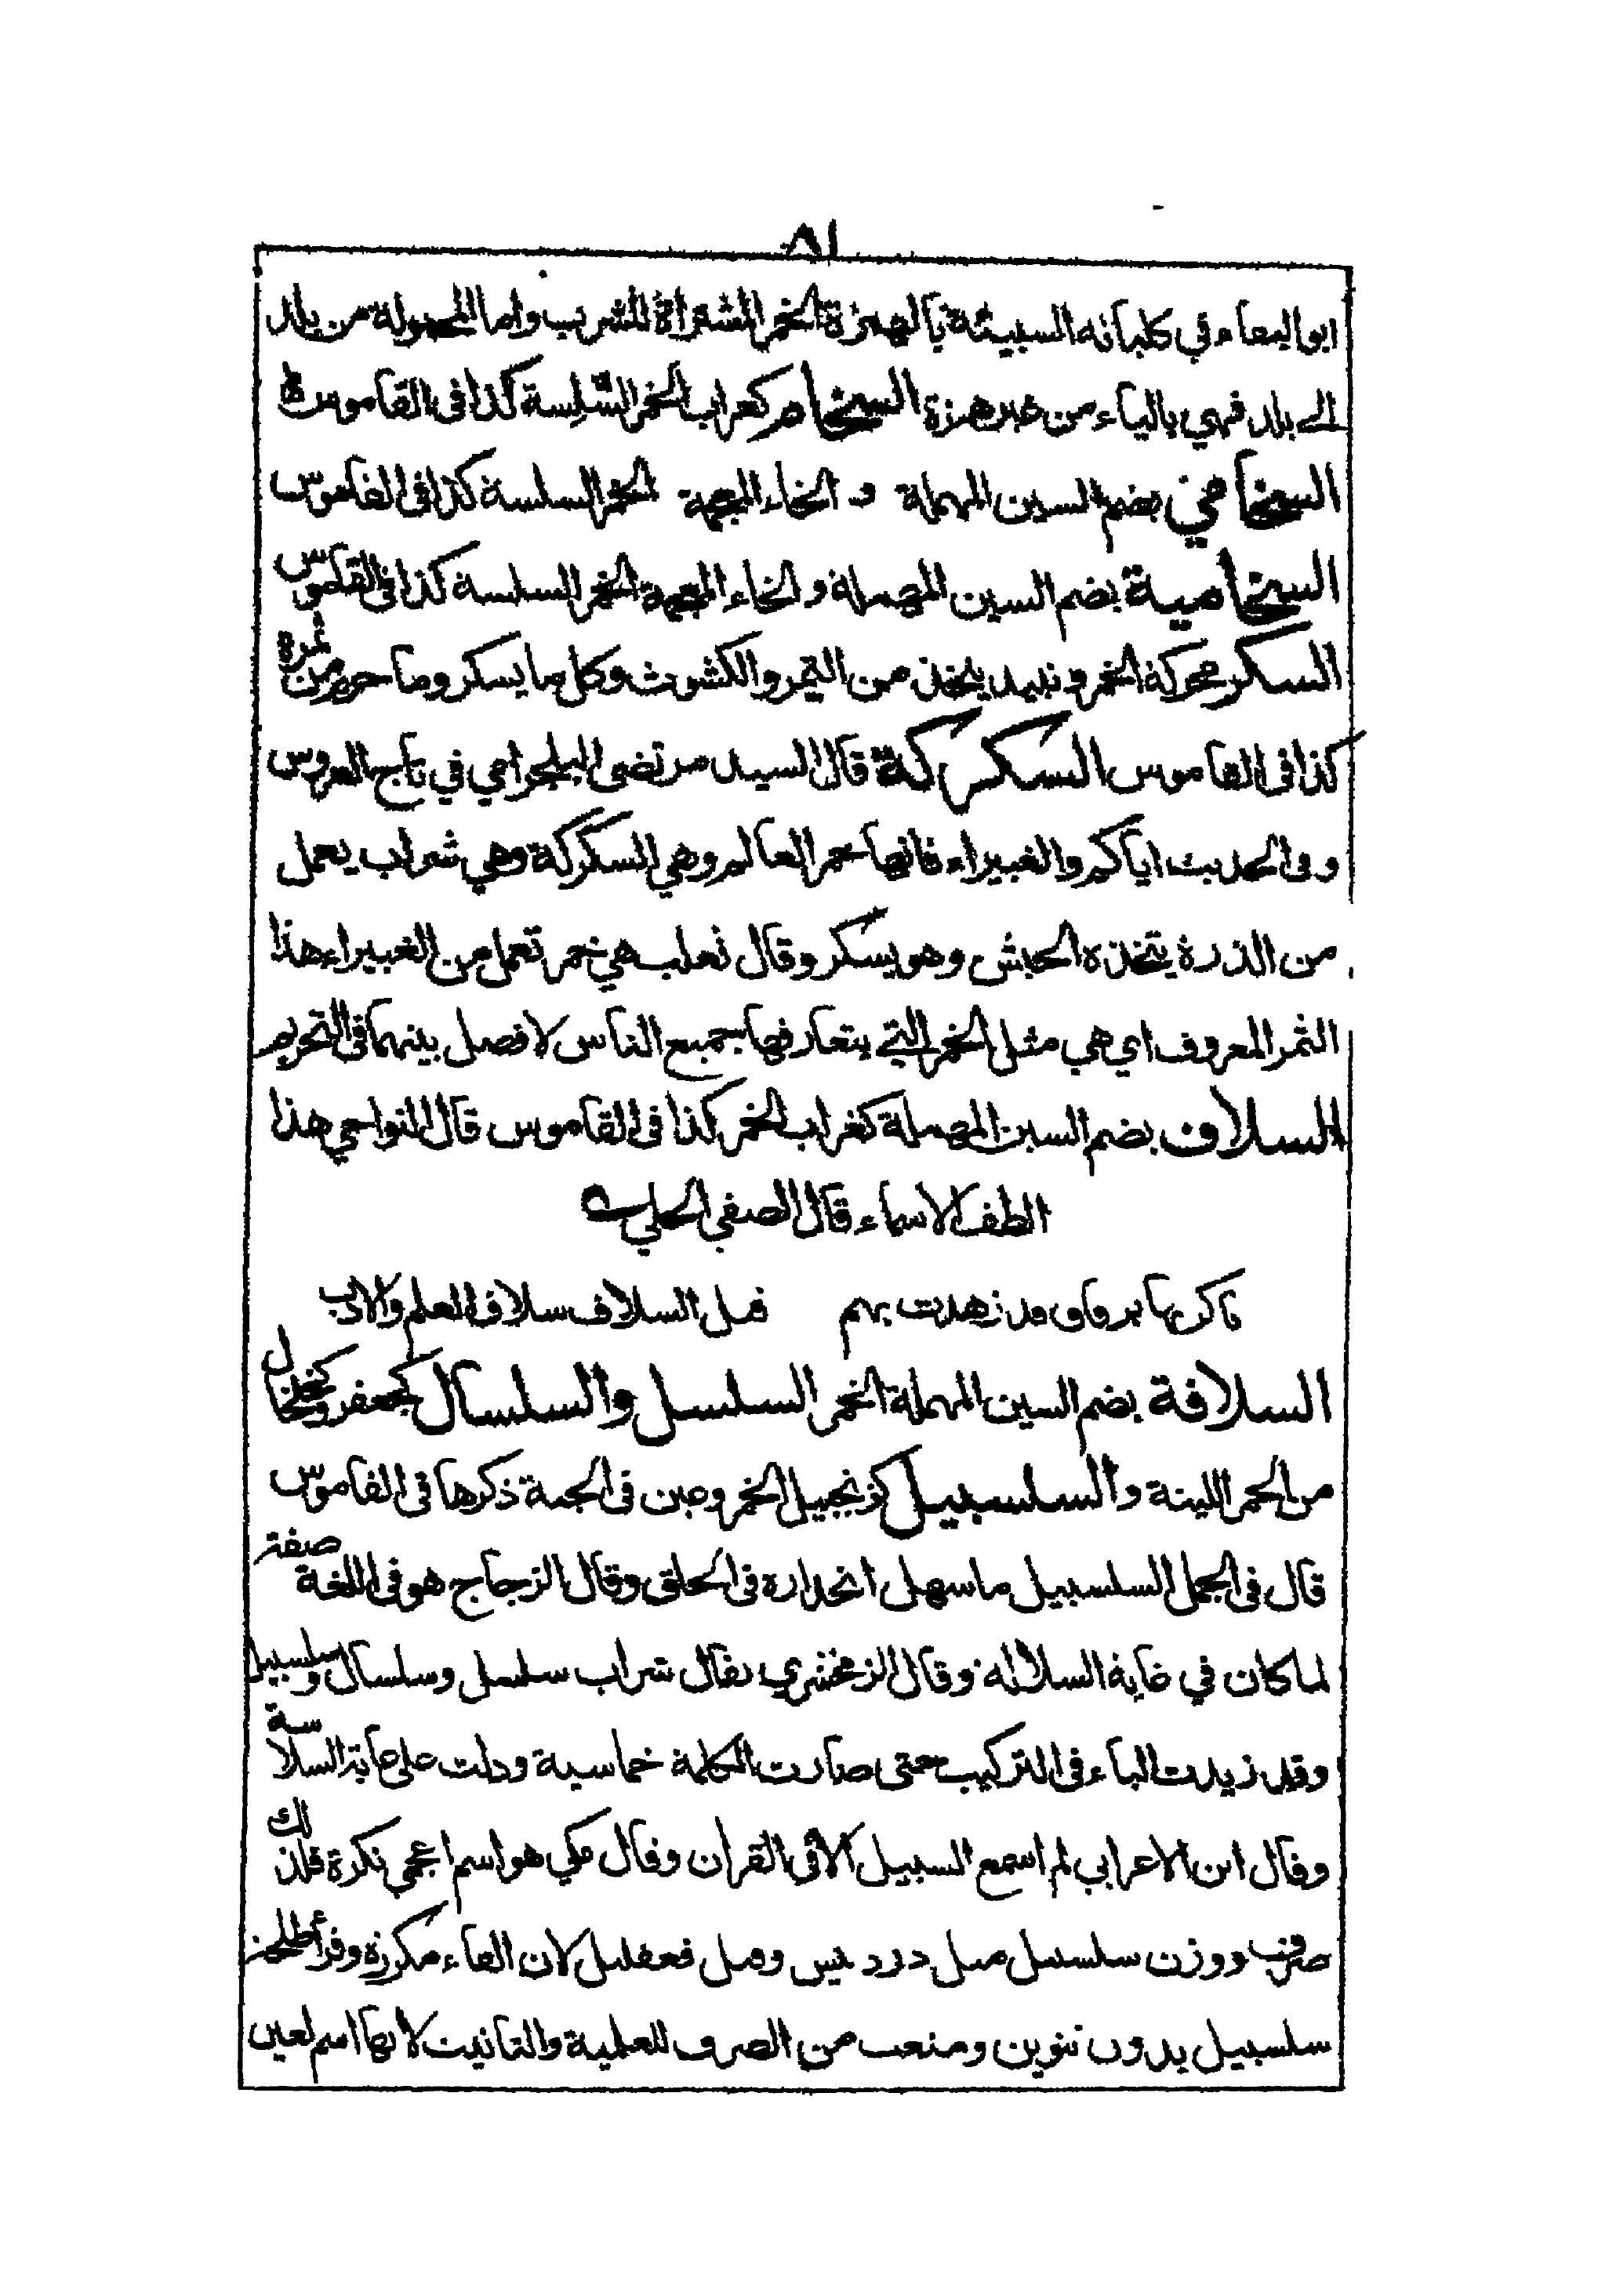 ٨١
ابوالبقاء في كلياته السبيئة بالهمزة الخمر المشتراة للشرب واما المحمولة من بلد
الى بلد فهي بالياء من غير همزة السخام كغراب الخمر السَّلِسة كذا في القاموس
السخامي بضم السين المهملة و الخاء المعجمة الخمر السلسة كذا في القاموس
السخامية بضم السين المهملة والخاء المعجمة الخمر السلسة كذا في القاموس
السكر محركة الخمر ونبيذ يتخذ من التمر والكشوث وكل ما يسكر وما حرم من ثمرة
كذا في القاموس السكركة قال السيد مرتضى البلجرامي في تاج العروس
وفي الحديث اياكم والغبيراء فانها خمر العالم وهي السكركة وهي شراب يعمل
من الذرة يتخذه الحبش وهو يسكر وقال ثعلب هي خمر تعمل من الغبيراء هذا
الثمر المعروف اي هي مثل الخمر التي يتعارفها جميع الناس لا فصل بينهما في التحريم
السلاف بضم السين المهملة كغراب الخمر كذا في القاموس قال النواجي هذا
الطف الاسماء قال الصفي الحلي
باكرتها برفاق قد زهدت بهم قبل السلاف سلاف العلم والادب
السلافة بضم السين المهملة الخمر السلسل والسلسال كجعفر وخلخال
من الخمر اللينة والسلسبيل كزنجبيل الخمر وعين في الجنة ذكرها في القاموس
قال في الجمل السلسبيل ما سهل انحداره في الحلق وقال الزجاج هو في اللغة صفة
لما كان في غاية السلاله وقال الزمخشري يقال شراب سلسل وسلسال وسلسبيل
وقد زيدت الباء في التركيب حتى صارت الكلمة خماسية ودلت على غاية السلاسة
وقال ابن الاعرابي لم اسمع السبيل الا في القران وقال مكي هو اسم اعجمي نكرة فلذلك
صرف ووزن سلسبيل مثل دردبيس وقيل فعفليل لان الفاء مكررة وقرأ طلحة
سلسبيل بدون تنوين ومنعت من الصرف للعلمية والتانيث لانها اسم لعين